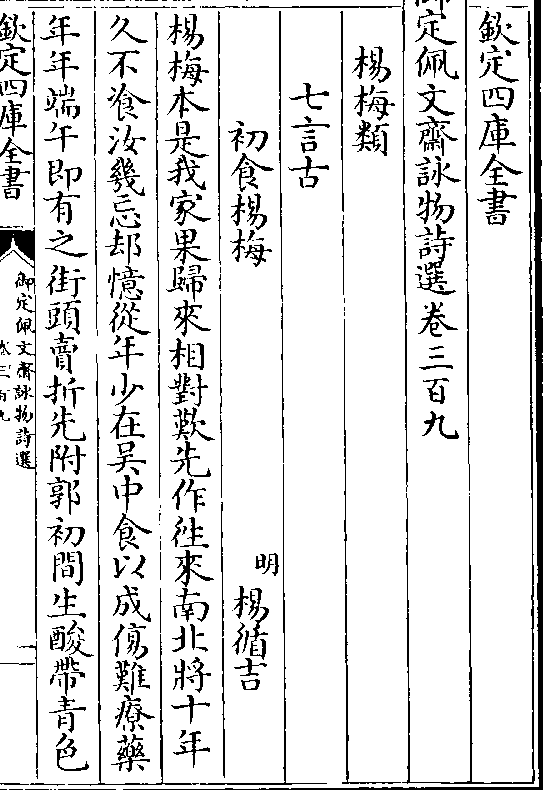 欽定四庫全書
御定佩文齋詠物詩選卷三百九
楊梅類
七言古
初食楊梅
明 楊循吉
楊梅本是我家果歸來相對歎先作徃來南北將十年
久不飡汝幾忘却憶從年少在吳中食以成傷難療藥
年年端午即有之街頭賣折先附郭初間生酸帶青色
欽定四庫全書
御定佩文齋詠物詩選
卷三百九
一